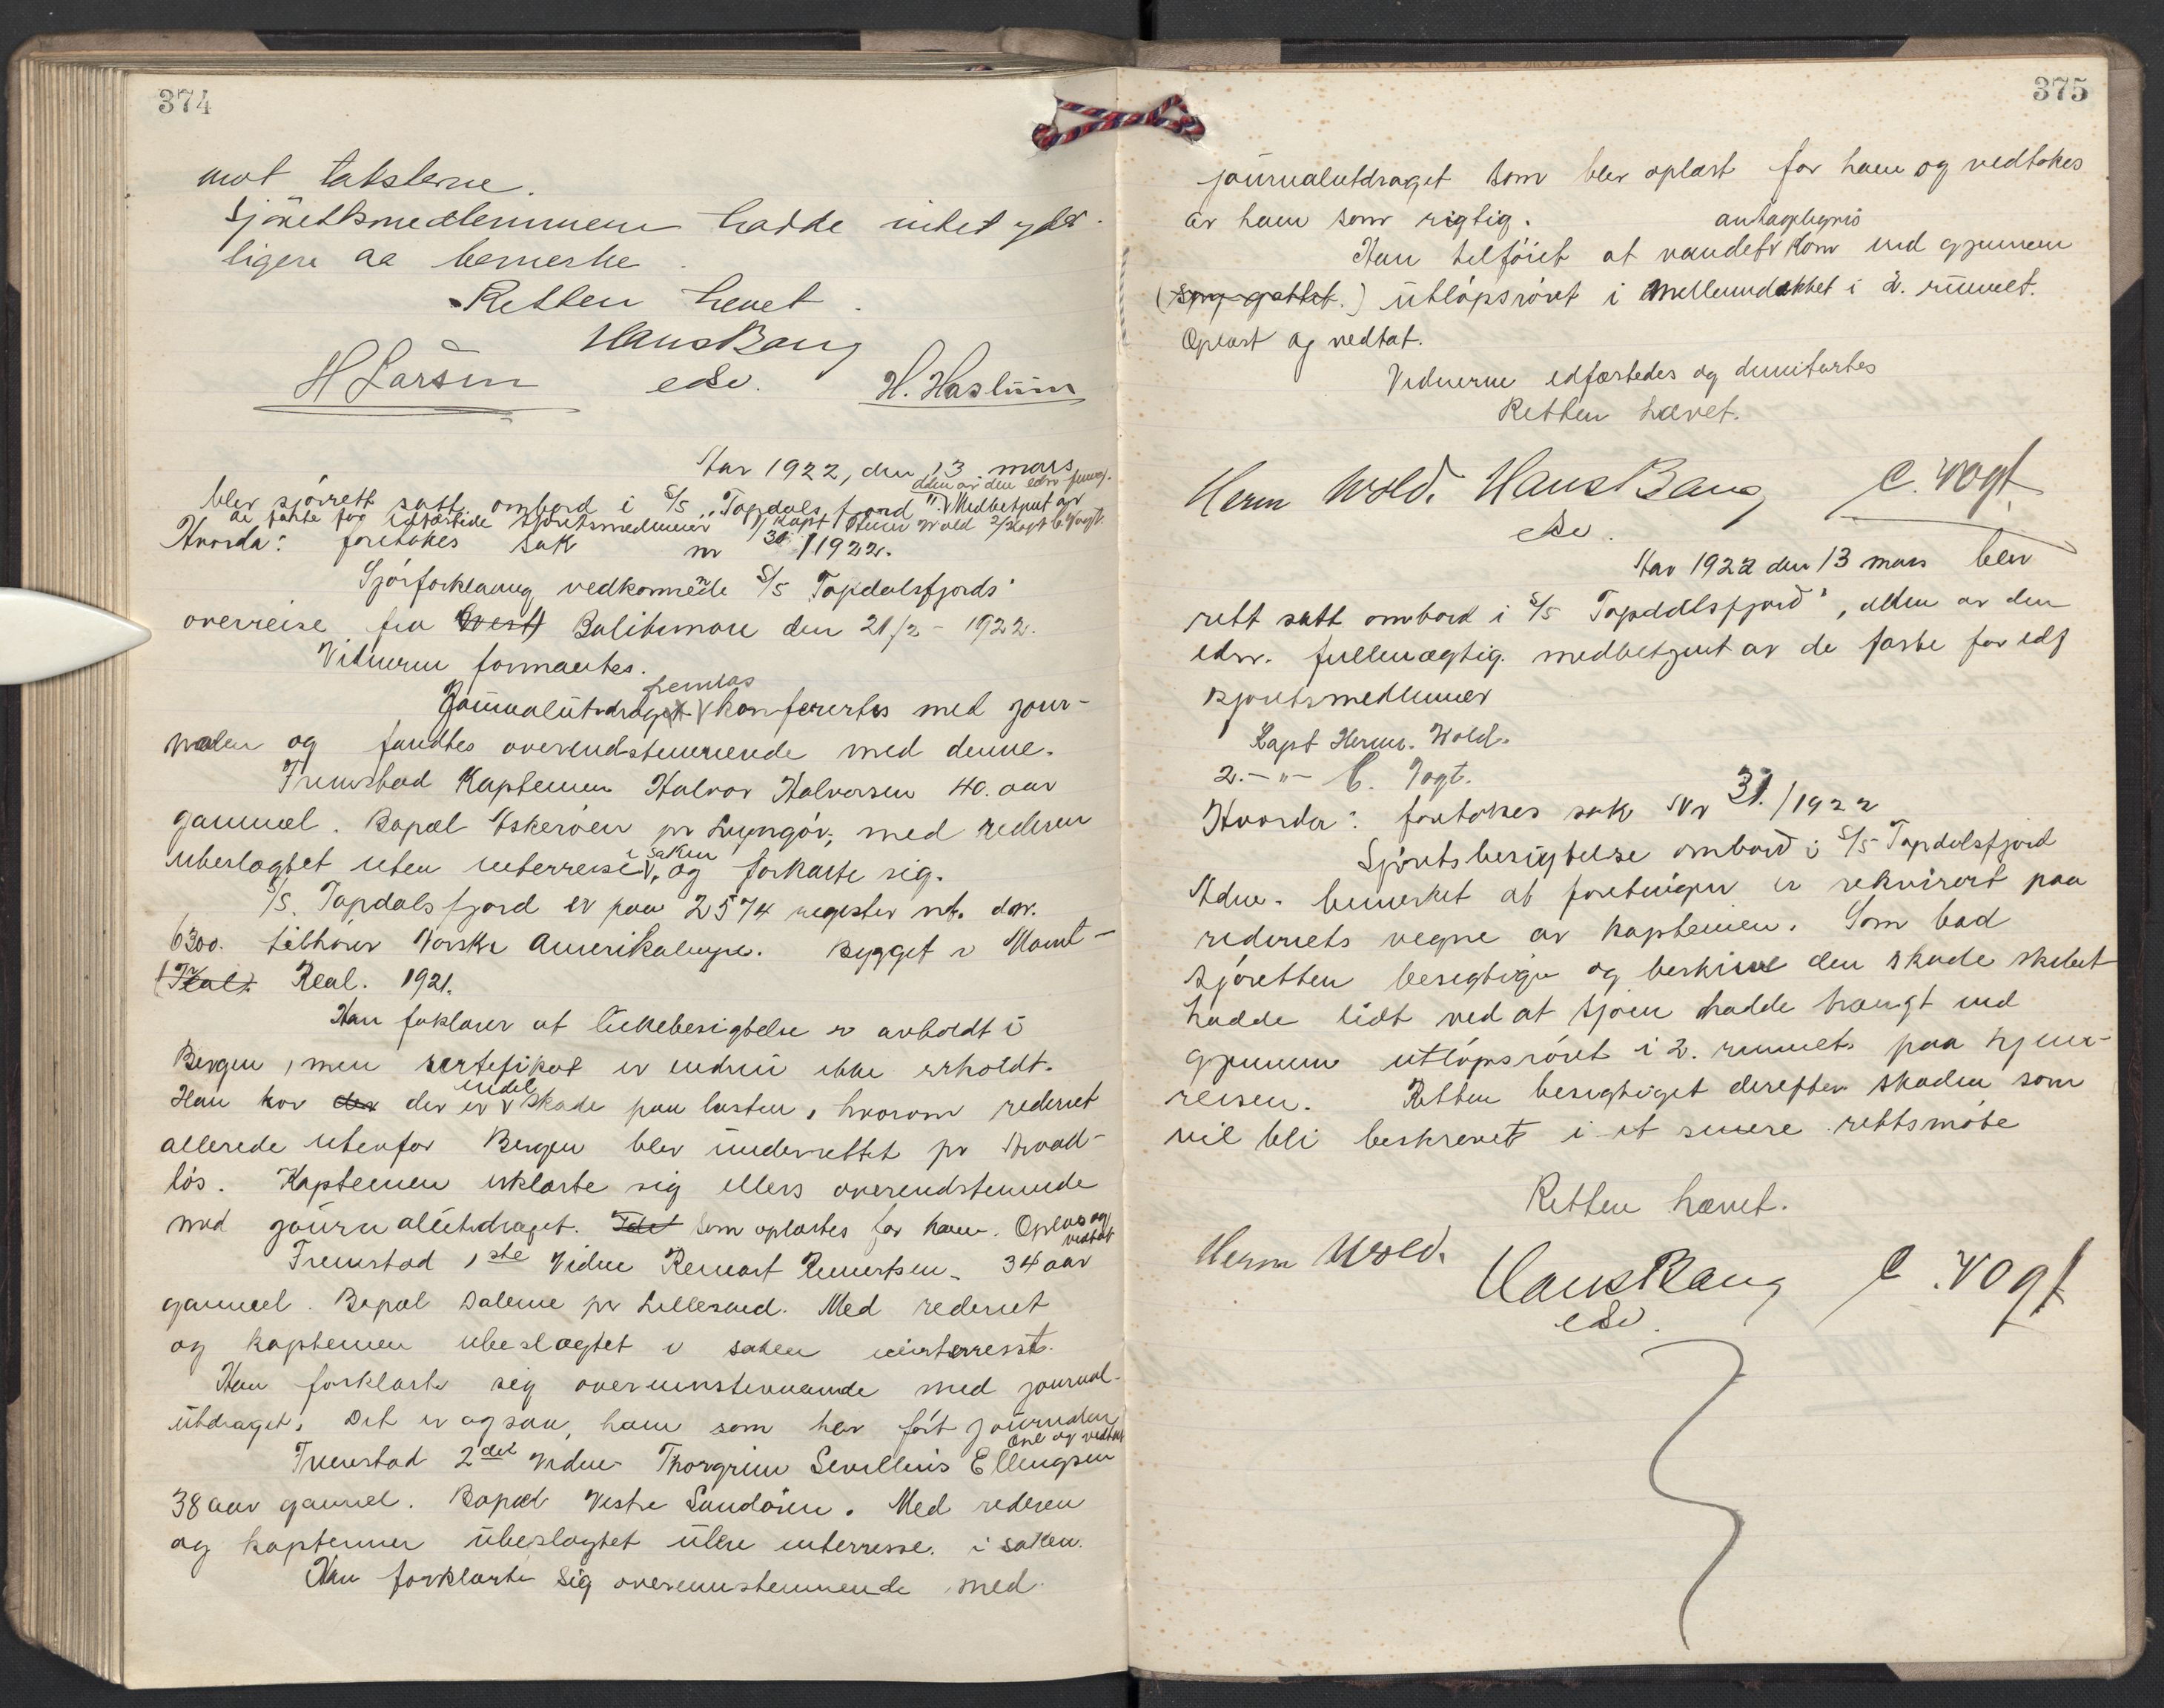 374
mot taksterne.
Sjörettsmedlemmene hadde intet yder-
ligere aa bemerke.
Retten hevet.
Hans Bang
H Larsen edv. H. Haslum
Aar 1922, den 13 mars
blev sjörett satt ombord i S/S „Topdalsfjord" Medbetjent av
de faste for edfæstede sjöretsmedlemmer 1/ Kapt Herm Wold 2/ Kapt C Vogt.
Hvorda: foretokes sak nr 30/1922.
Sjöforklaring vedkommende S/S Topdalsfjords'
overreise fra Baltimore den 21/2 - 1922.
Vidnerne formantes.
fremlas
Journalutdraget konferertes med jour-
nalen og fandtes overendstemmende med denne.
Fremstod Kapteinen Halvor Halvorsen 40. aar
gammel. Bopæl Askeröen pr Lyngör, med rederen
ubeslægtet uten interresse i saken, og forklarte sig.
S/S. Topdalsfjord er paa 2574 register nt. dw.
6300. tilhörer Norske Amerikalinje. Bygget i Mont-
Real. 1921.
Han forklarer at lukebesigtelse er avholdt i
Bergen, men sertefikat er endnu ikke erholdt.
Han tror der er endel skade paa lasten, hvorom rederiet
allerede utenfor Bergen blev underrettet pr traad-
lös. Kapteinen erklærte sig ellers overendstemmende
med journalutdraget. Som oplæstes for ham. Oplæs og
vedtat
Fremstod 1ste Vidne Reinert Reinertsen. 34 aar
gammel. Bopæl Dalene pr Lillesand. Med rederiet
og kapteinen ubeslægtet i saken uinterresset.
Han forklarte sig overensstemmende med journal-
utdraget. Det er ogsaa, ham som har fört journalen
Opl og vedtat
Fremstod 2det Vidne Thorgrim Ellingsen
38 aar gammel. Bopæl Vestre Sandöien. Med rederen
og kapteinen ubeslægtet uten interresse i saken.
Han forklarte sig overensstemmende med
375
journalutdraget som blev oplæst for ham og vedtokes
av ham som rigtig.
antageligvis
Han tilföiet at vandet kom ind gjennem
utlöpsröret i mellemdækket i 2. rummet.
Oplæst og vedtat.
Vidnerne edfæstedes og dimitertes
Retten hævet.
Herm Wold. Hans Bang C. Vogt
edv.
Aar 1922 den 13 mars blev
rett satt ombord i S/S Topdalsfjord', av den
edsv. fullmægtig. medbetjent av de faste for edf
sjoretsmedlemmer
Kapt Herm. Wold.
2. -"- C. Vogt.
Hvorda: foretokes sak Nr 31./1922
Sjöretsbesigtelse ombord i S/S Topdalsfjord
Adm. bemerket at foretningen er rekvirert paa
rederiets vegne av kapteinen. Som bad
sjöretten besigtige og beskrive den skade skibet
hadde lidt ved at sjöen hadde trængt ind
gjennem utlöpsröret i 2. rummet paa hjem-
reisen. Retten besigtiget derefter skaden som
vil bli beskrevet i et senere rettsmöte
Retten hævet.
Herm Wold. Hans Bang C. Vogt
edv.